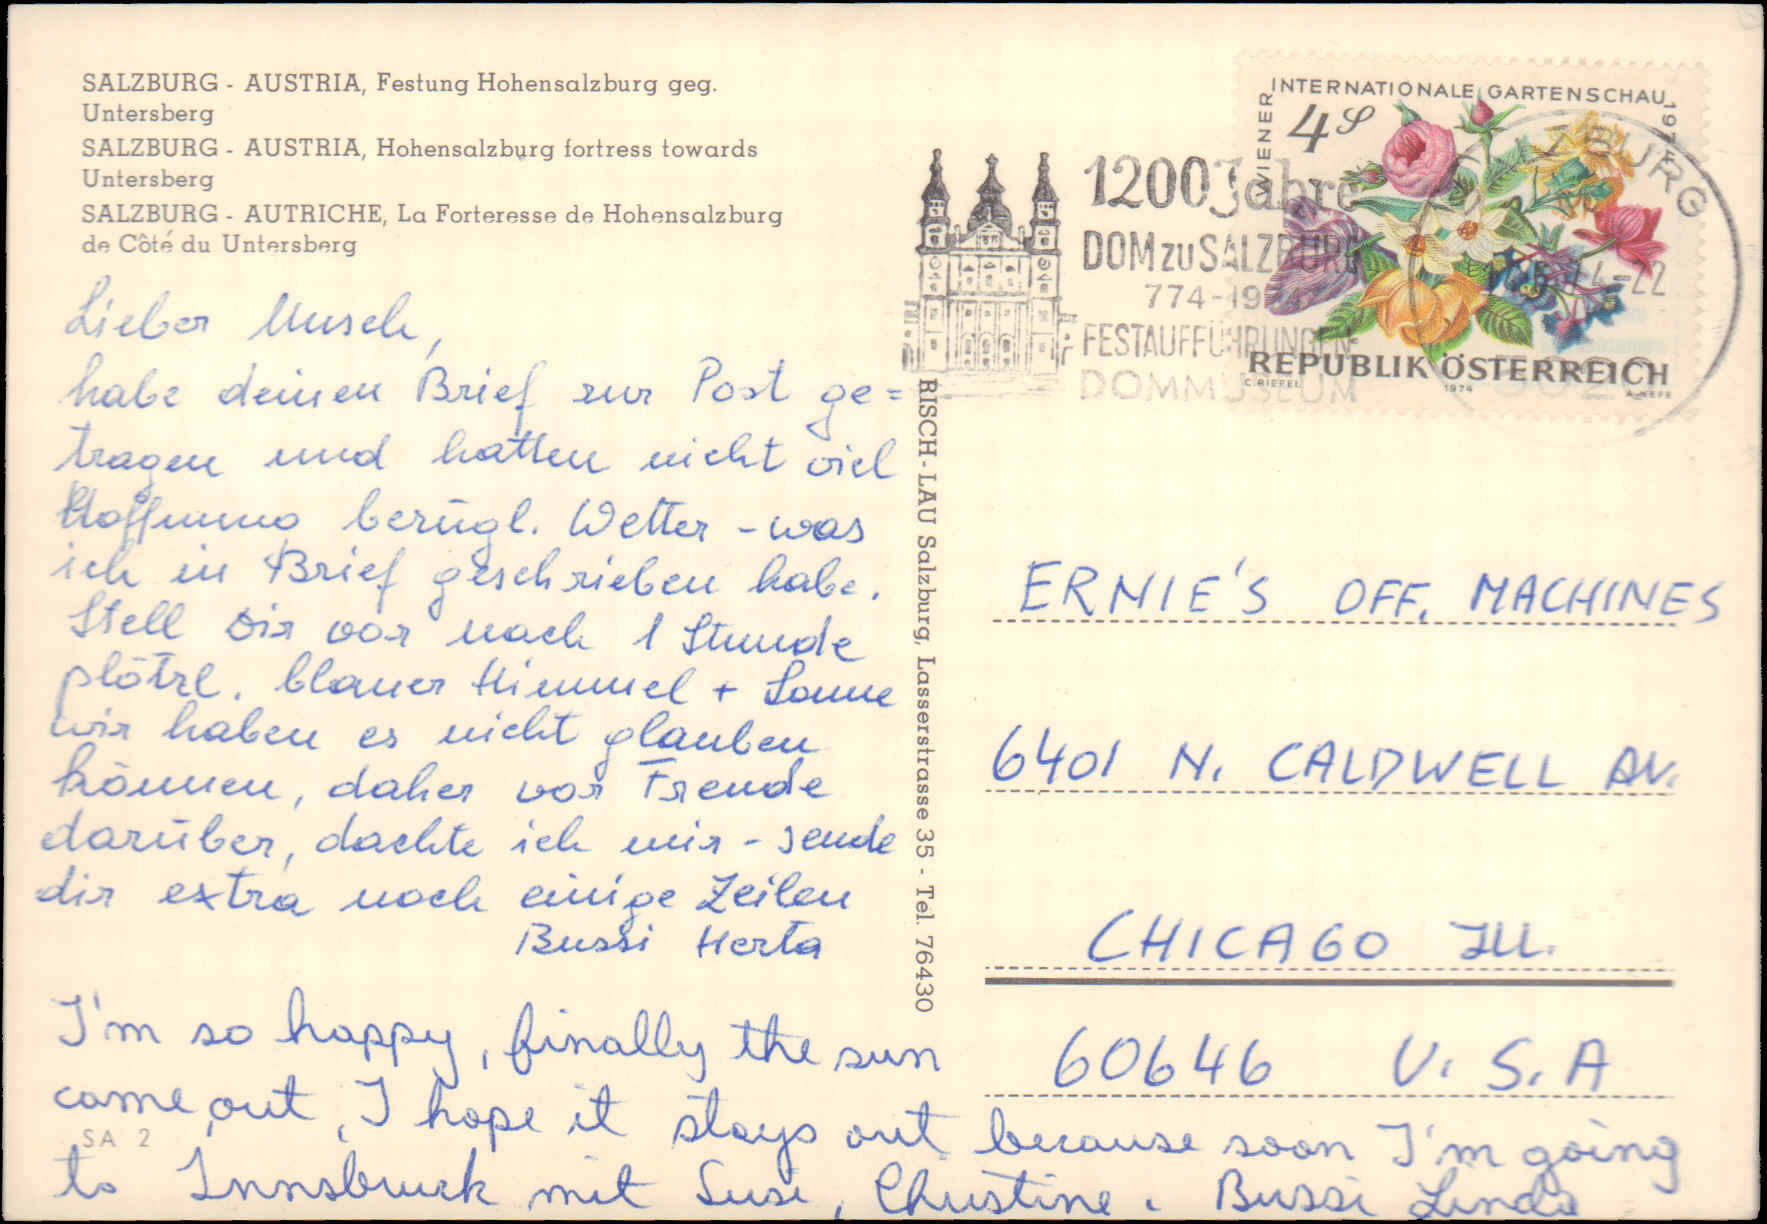 SALZBURG - AUSTRIA, Festung Hohensalzburg geg.
Untersberg
SALZBURG - AUSTRIA, Hohensalzburg fortress towards
Untersberg
SALZBURG - AUTRICHE, La Forteresse de Hohensalzburg
de Côté du Untersberg
Lieber Musch,
habe deinen Brief zur Post ge=
tragen und hatten nicht viel
Hoffnung bezügl. Wetter - was
ich in Brief geschrieben habe.
Stell Dir vor nach 1 Stunde
plötzl. blauer Himmel + Sonne
wir haben es nicht glauben
können, daher vor Freude
darüber, dachte ich mir - sende
dir extra noch einige Zeilen
Bussi Herta
I'm so happy, finally the sun
came out, I hope it stays out because soon I'm going
to Innsbruck mit Susi, Christine. Bussi Linda
SA 2
RISCH-LAU Salzburg, Lasserstrasse 35 - Tel. 76430
1200 Jahre
DOM ZU SALZBURG
774-1974
FESTAUFFÜHRUNGEN
DOMMUSEUM
WIENER INTERNATIONALE GARTENSCHAU 1974
4 S
REPUBLIK ÖSTERREICH
C. RIEFEL 1974 A. NEFE
ZBURG
74-22
ERNIE'S OFF. MACHINES
6401 N. CALDWELL AV.
CHICAGO Ill.
60646 U.S.A